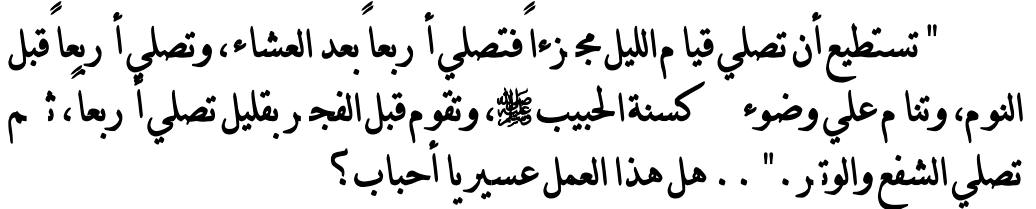 "تستطيع أن تصلي قيام الليل مجزءاً فتصلي أربعاً بعد العشاء، وتصلي أربعاً قبل
النوم، وتنام علي وضوء كسنة الحبيب ﷺ، وتقوم قبل الفجر بقليل تصلي أربعاً، ثم
تصلي الشفع والوتر." .. هل هذا العمل عسير يا أحباب؟